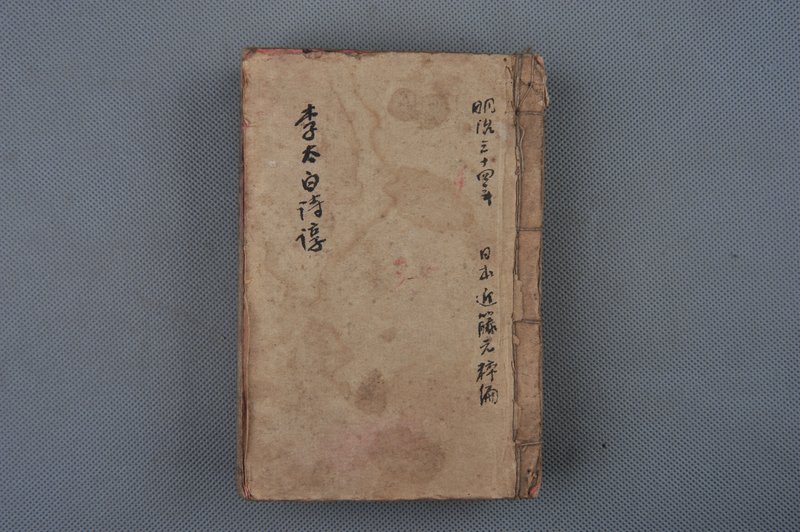 明治三十四年　日本近籐元粹編
李太白詩諄